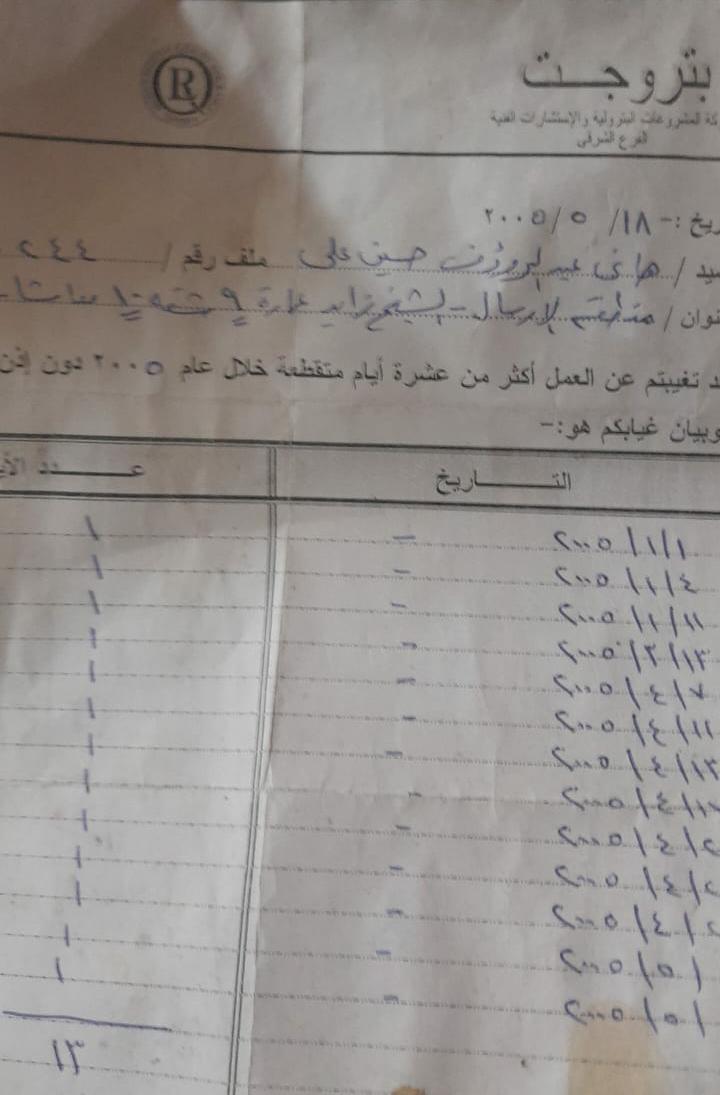 بتروجت
كة المشروعات البترولية والإستشارات الفنية
الفرع الشرقى
ريخ :- ١٨/ ٥ /٢٠٠٥
سيد / هانى عبد الرؤف حسين على ملف رقم / ٢٤٤
نوان / منطقة الارسال - الشيخ زايد عمارة ٩ شقة ١٠
د تغيبتم عن العمل أكثر من عشرة أيام متقطعة خلال عام ٢٠٠٥ دون إذن
وبيان غيابكم هو:-
التـــاريخ عـــدد الأي
١/١/ ٢٠٠٥ - ١
٤/ ١/ ٢٠٠٥ - ١
١١/ ١/ ٢٠٠٥ - ١
١٣/ ٢/ ٢٠٠٥ - ١
٧/ ٤/ ٢٠٠٥ - ١
١١/ ٤/ ٢٠٠٥ - ١
١٣/ ٤/ ٢٠٠٥ - ١
/ ٤/ ٢٠٠٥ - ١
٢/ ٤/ ٢٠٠٥ - ١
٢/ ٤/ ٢٠٠٥ - ١
٢/ ٤/ ٢٠٠٥ - ١
/ ٥/ ٢٠٠٥ - ١
/ ٥/ ٢٠٠٥ - ١
١٣